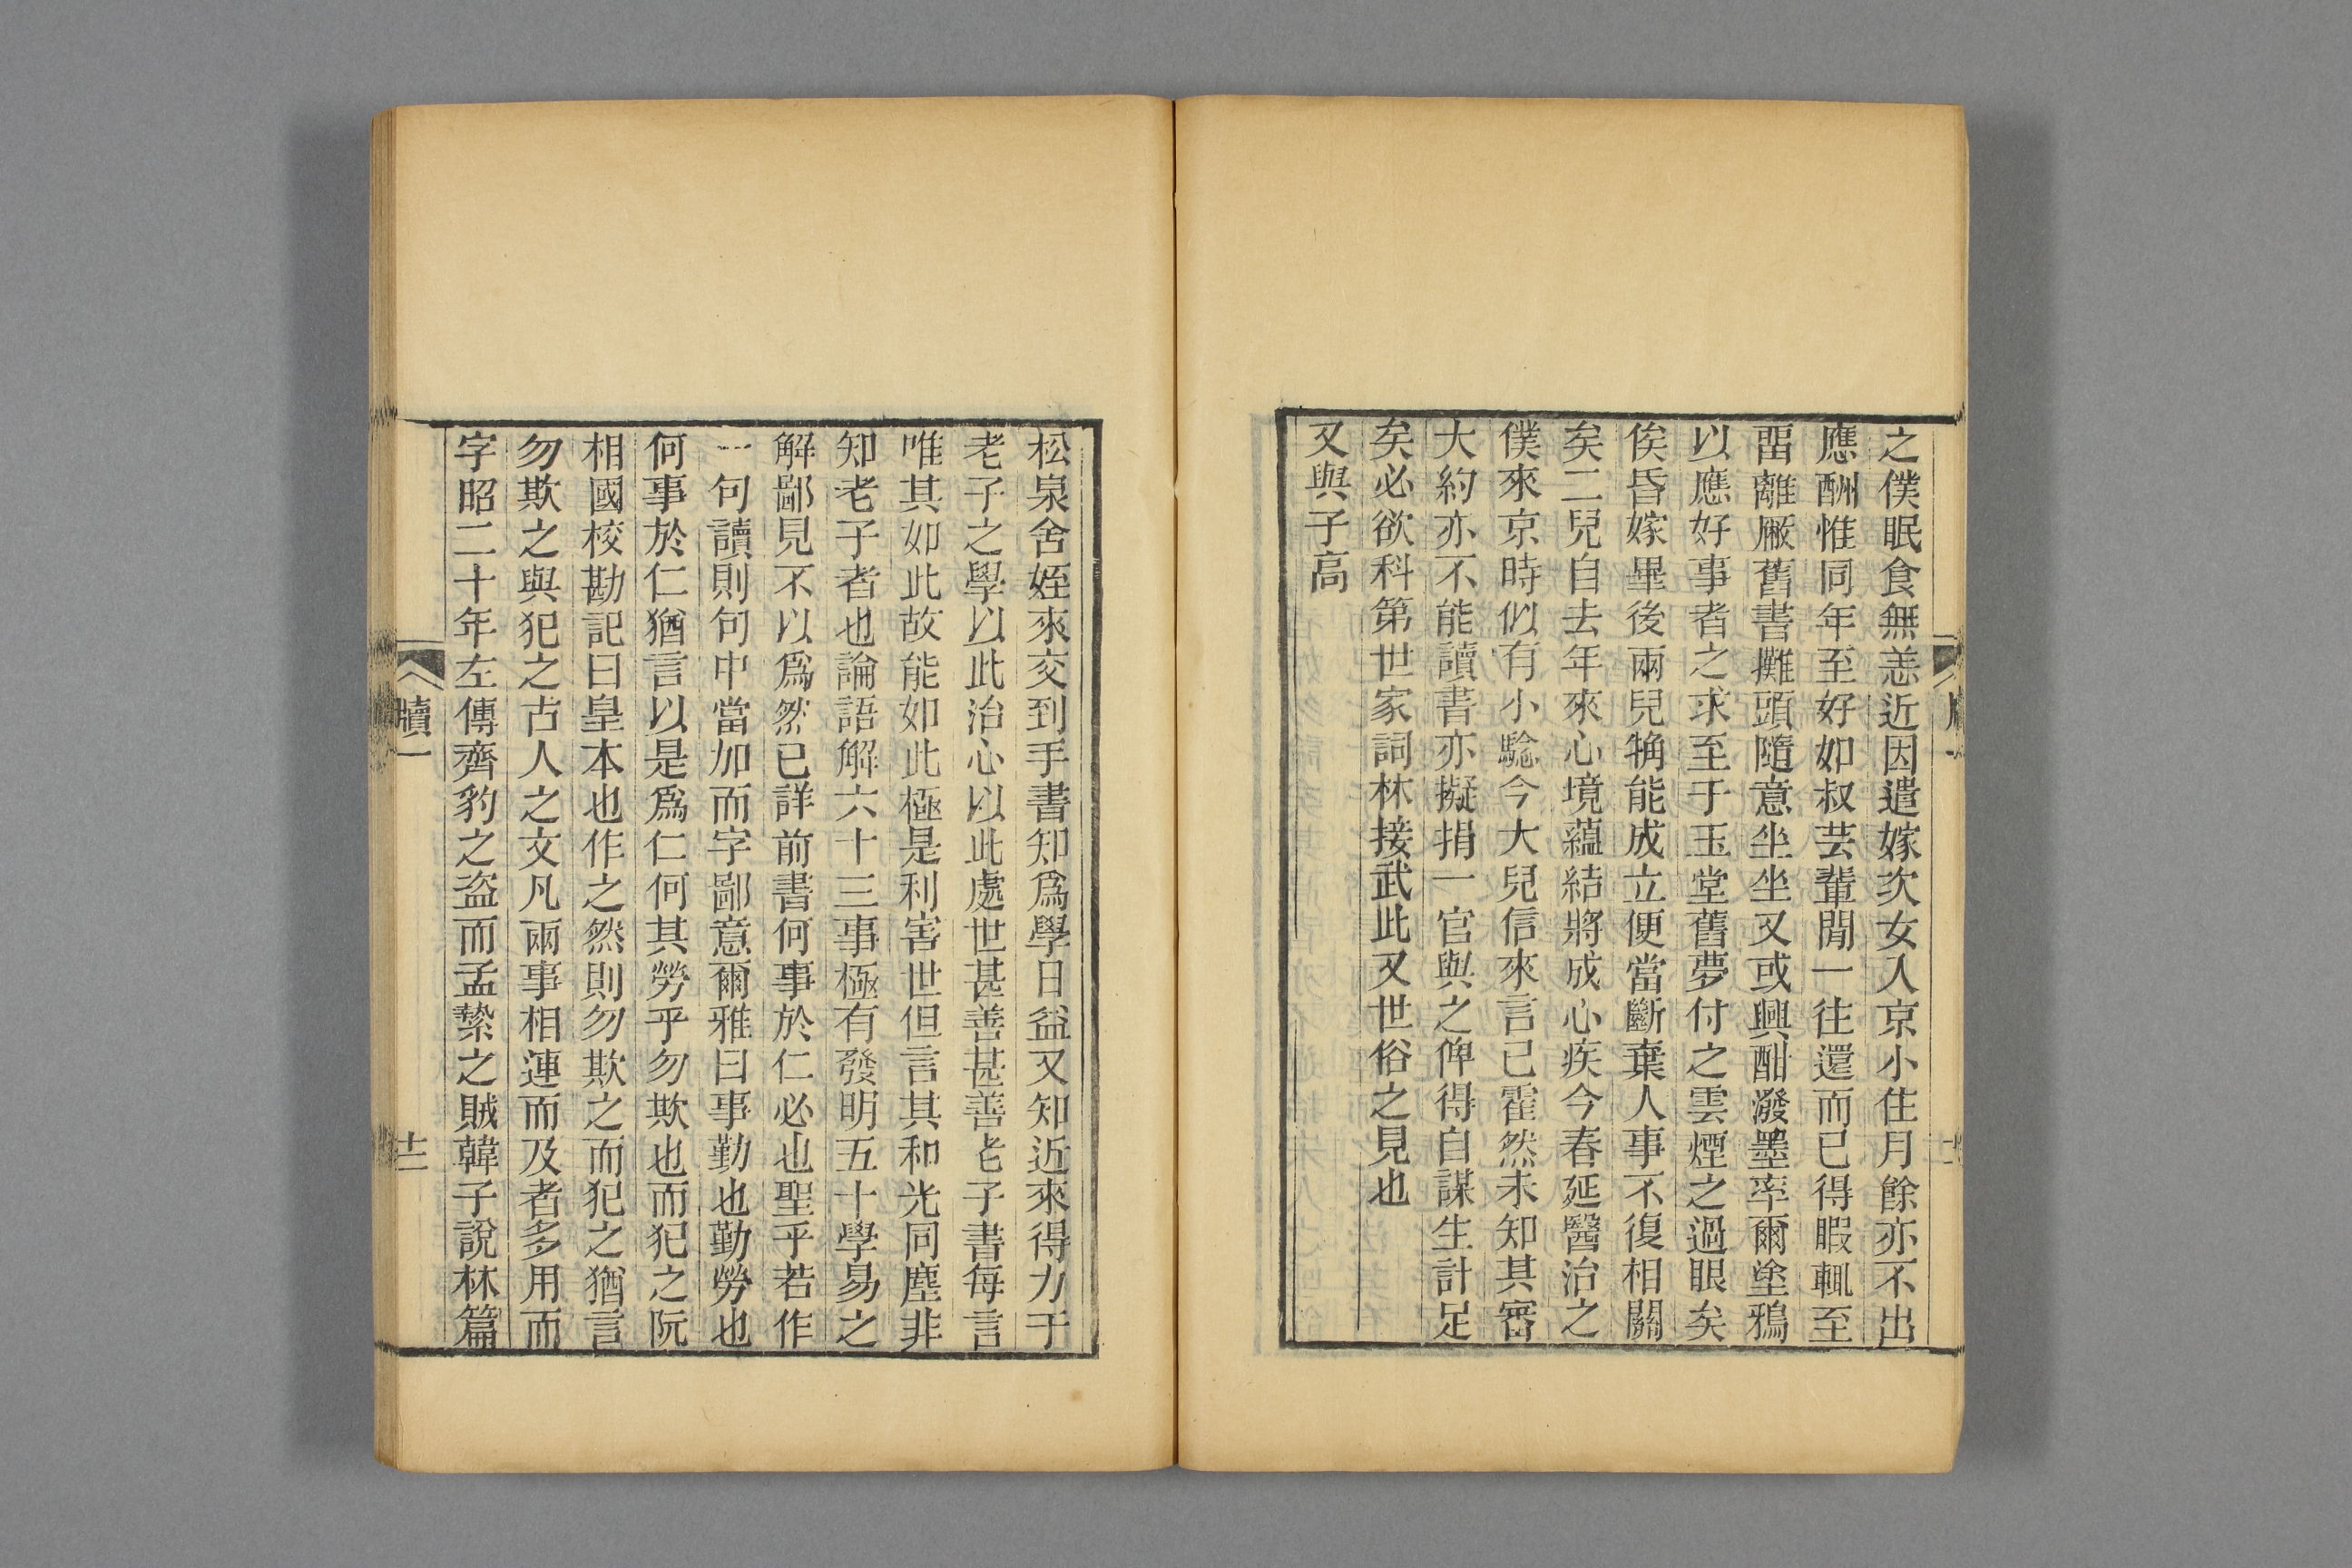 之僕眠食無恙近因遣嫁次女入京小住月餘亦不出
應酬惟同年至好如叔芸輩閒一往還而已得暇輒至
畱離厰舊書攤頭隨意坐坐又或興酣潑墨率爾塗鴉
以應好事者之求至于玉堂舊夢付之雲煙之過眼矣
俟昏嫁畢後兩兒犄能成立便當斷棄人事不復相關
矣二兒自去年來心境蘊結將成心疾今春延醫治之
僕來京時似有小騐今大兒信來言已霍然未知其審
大約亦不能讀書亦擬捐一官與之俾得自謀生計足
矣必欲科第世家詞林接武此又世俗之見也
又與子高
松泉舍姪來交到手書知爲學日益又知近來得力于
老子之學以此治心以此處世甚善甚善老子書每言
唯其如此故能如此極是利害世但言其和光同塵非
知老子者也論語解六十三事極有發明五十學易之
解鄙見不以爲然已詳前書何事於仁必也聖乎若作
一句讀則句中當加而字鄙意爾雅曰事勤也勤勞也
何事於仁猶言以是爲仁何其勞乎勿欺也而犯之阮
相國校勘記曰皇本也作之然則勿欺之而犯之猶言
勿欺之與犯之古人之文凡兩事相連而及者多用而
字昭二十年左傳齊豹之盜而孟縶之賊韓子說林篇
牘一
十二